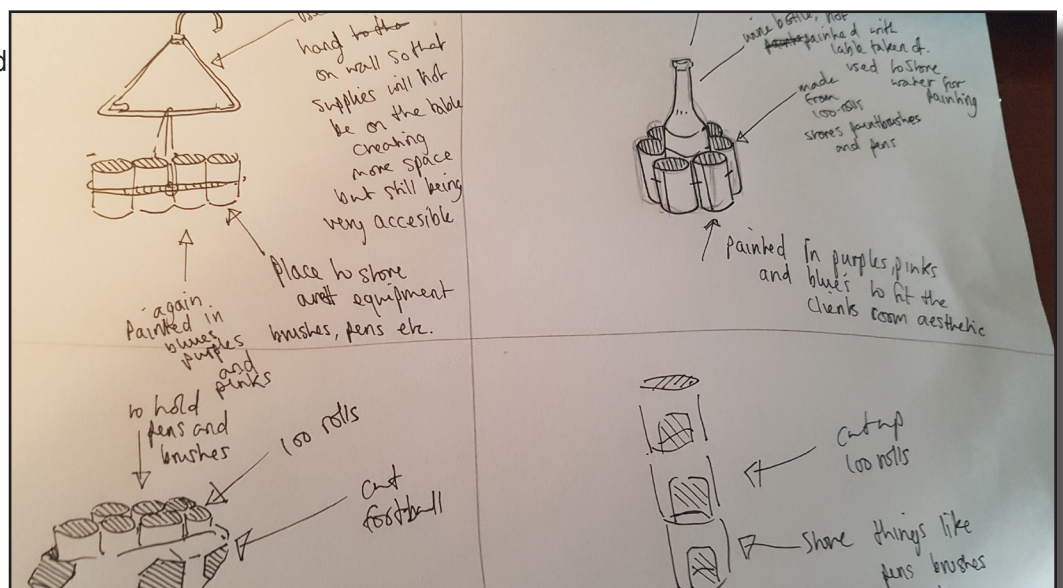 d
hand to the
on wall so that
supplies will not
be on the table
creating
more space
but still being
very accesible
Place to store
art equipment
brushes, pens etc.
again
Painted in
blues
purples
and
pinks
wine bottle, not
painted with
lable taken of.
used to store
water for
painting
made
from
loo rolls
stores paintbrushes
and pens
painted In purples, pinks
and blues to fit the
clients room aesthetic
to hold
pens and
brushes
loo rolls
cut
football
cut up
loo rolls
store things like
pens brushes